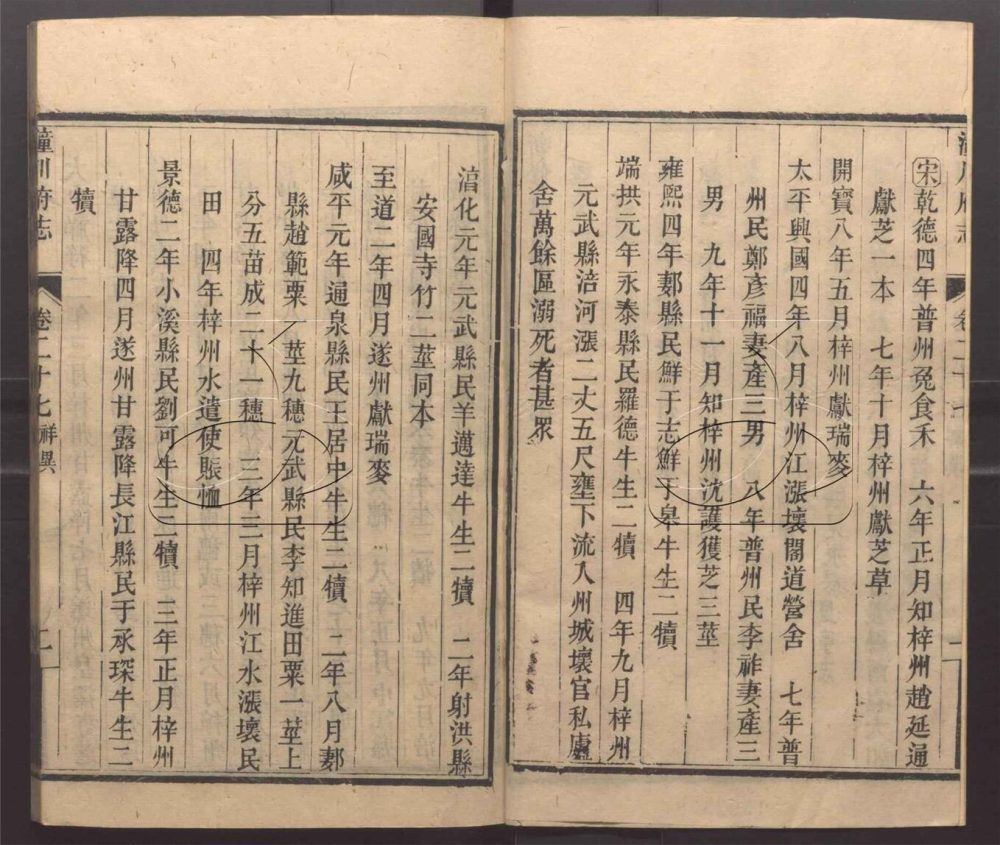 宋乾德四年普州兔食禾　六年正月知梓州趙延通
獻芝一本　七年十月梓州獻芝草
開寶八年五月梓州獻瑞麥
太平興國四年八月梓州江漲壞閣道營舍　七年普
州民鄭彥福妻產三男　八年普州民李祚妻產三
男　九年十一月知梓州沈護獲芝三莖
雍熙四年郪縣民鮮于志鮮于皋牛生二犢
端拱元年永泰縣民羅德牛生二犢　四年九月梓州
元武縣涪河漲二丈五尺壅下流入州城壞官私廬
舍萬餘區溺死者甚眾
淳化元年元武縣民羊邁達牛生二犢　二年射洪縣
安國寺竹二莖同本
至道二年四月遂州獻瑞麥
咸平元年通泉縣民王居中牛生二犢　二年八月郪
縣趙範粟一莖九穗元武縣民李知進田粟一莖上
分五苗成二十一穗　三年三月梓州江水漲壞民
田　四年梓州水遣使賑恤
景德二年小溪縣民劉可牛生二犢　三年正月梓州
甘露降四月遂州甘露降長江縣民于承琛牛生二
犢
潼川府志　卷二十七 祥異